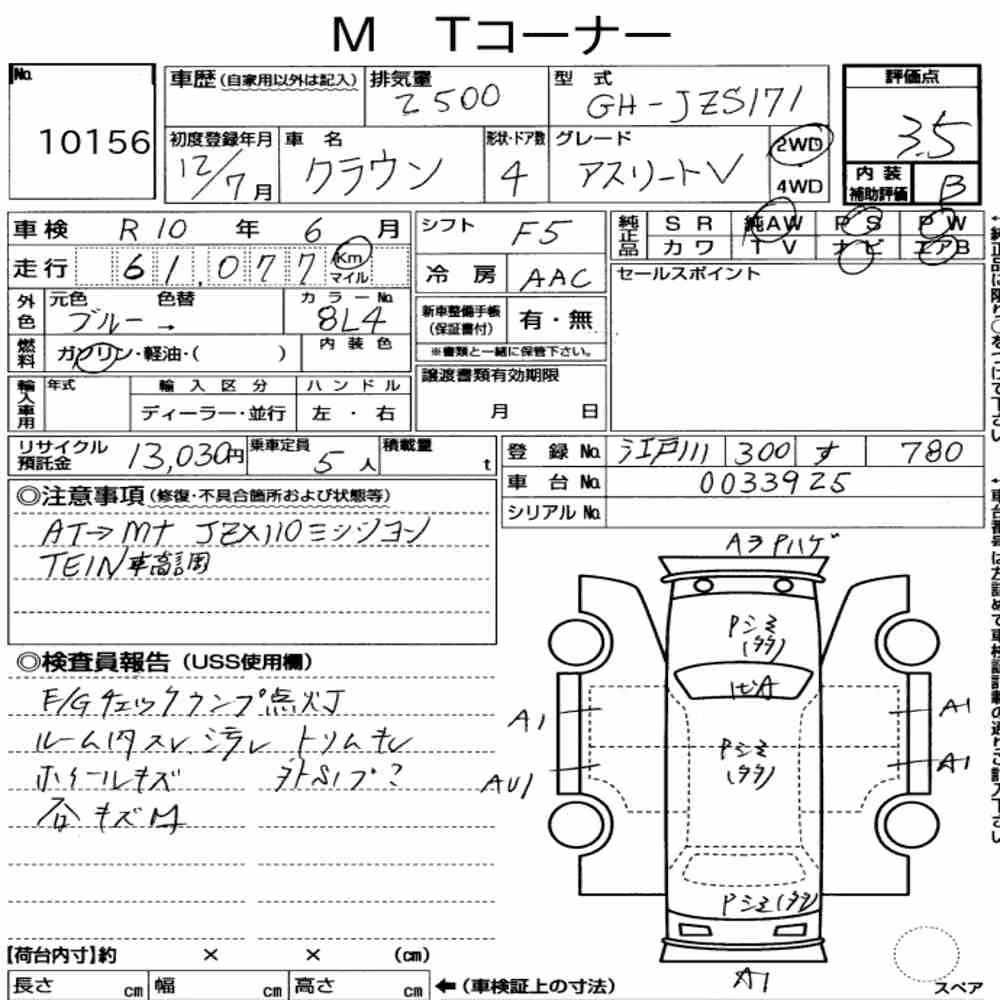 M Tコーナー
No. 10156
車歴(自家用以外は記入) 排気量 2500 型式 GH-JZS171
初度登録年月 12/7月 車名 クラウン 形状・ドア数 4 グレード アスリートV 2WD 4WD
評価点 3.5
内装補助評価 B
車検 R10年 6月
走行 61,077 Km マイル
外色 元色 ブルー → 色替 カラーNo. 8L4
燃料 ガソリン・軽油・( ) 内装色
輸入車用 年式 輸入区分 ディーラー・並行 ハンドル 左・右
シフト F5
冷房 AAC
新車整備手帳(保証書付) 有・無
※書類と一緒に保管下さい。
譲渡書類有効期限
月 日
純正品 SR 純AW PS PW
カワ TV ナビ エアB
セールスポイント
←純正品に限り○をつけて下さい
リサイクル預託金 13,030円 乗車定員 5人 積載量 t
登録No. 江戸川 300 す 780
車台No. 0033925
シリアルNo.
←車台番号は左詰めで車検証記載の通りご記入下さい
◎注意事項(修復・不具合箇所および状態等)
AT→Mt JZX110ミッション
TEIN車高調
◎検査員報告(USS使用欄)
E/Gチェックランプ点灯
ルーム内スレ、汚レ トリムキレ
ホイールキズ
各キズM
Aヲ Pハゲ
Pシミ(タタ)
A1
A1
Pシミ(タタ)
AU1
A1
Pシミ(タタ)
A1
スペア
【荷台内寸】約 × × (cm)
長さ cm 幅 cm 高さ cm ←(車検証上の寸法)